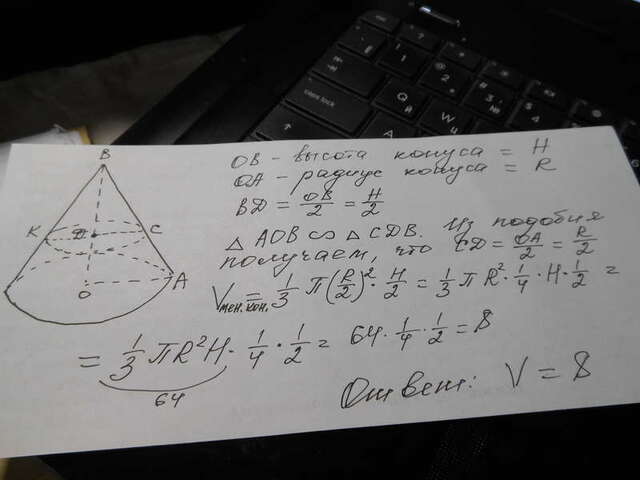 OB - высота конуса = H
OA - радиус конуса = R
BD = OB/2 = H/2
△ AOB ∾ △ CDB. Из подобия
получаем, что CD = OA/2 = R/2
Vмен.кон. = 1/3 π(R/2)² · H/2 = 1/3 πR² · 1/4 · H · 1/2 =
= 1/3 πR²H · 1/4 · 1/2 = 64 · 1/4 · 1/2 = 8
64
Ответ: V = 8
B
K
D
C
O
A
caps lock
Q
A
W
1
2